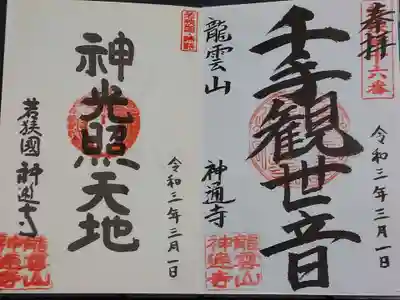 奉拝
千手観世音
龍雲山
神通寺
令和三年三月一日
龍雲山
神通寺
神光照天地
若狭國
神通寺
令和三年三月一日
龍雲山
神通寺